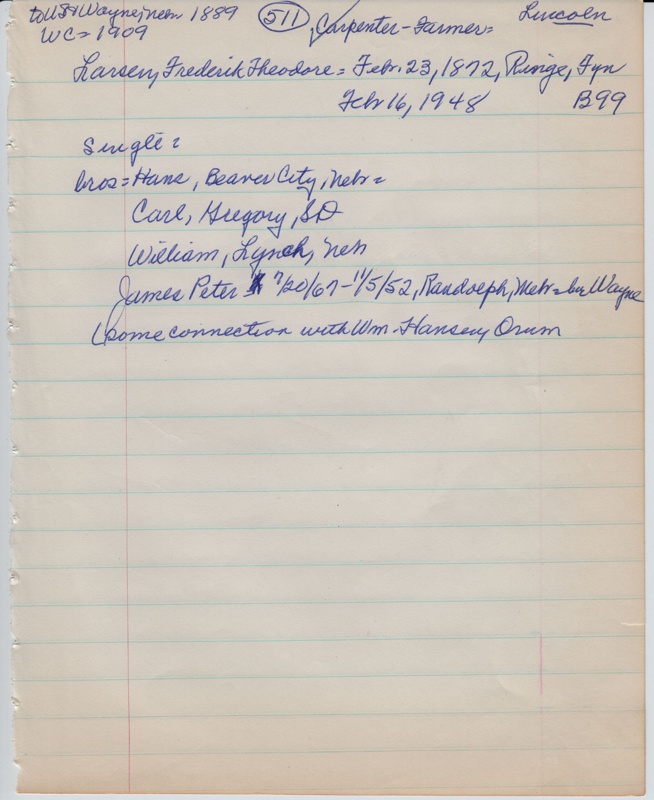 to US & Wayne, Nebr 1889 511 Carpenter-Farmer= Lincoln
WC= 1909
Larsen, Frederik Theodore= Febr. 23, 1872, Ringe, Fyn
Febr 16, 1948 B99
Single=
bros= Hans, Beaver City, Nebr=
Carl, Gregory, SD
William, Lynch, Neb
James Peter 7/20/67-11/5/52, Randolph, Nebr= bu Wayne
(some connection with Wm. Hansen, Orum